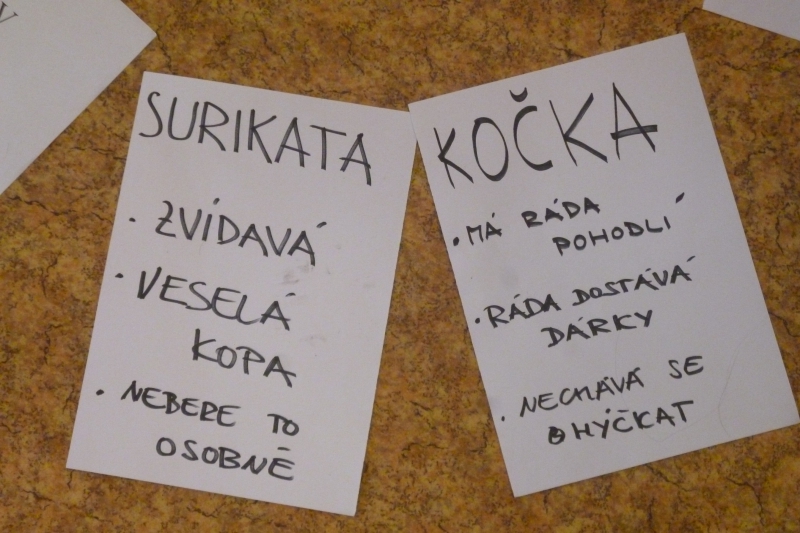 SURIKATA
· ZVÍDAVÁ
· VESELÁ
KOPA
· NEBERE TO
OSOBNĚ
KOČKA
· MÁ RÁDA
POHODLÍ
· RÁDA DOSTÁVÁ
DÁRKY
· NECHÁVÁ SE
HÝČKAT